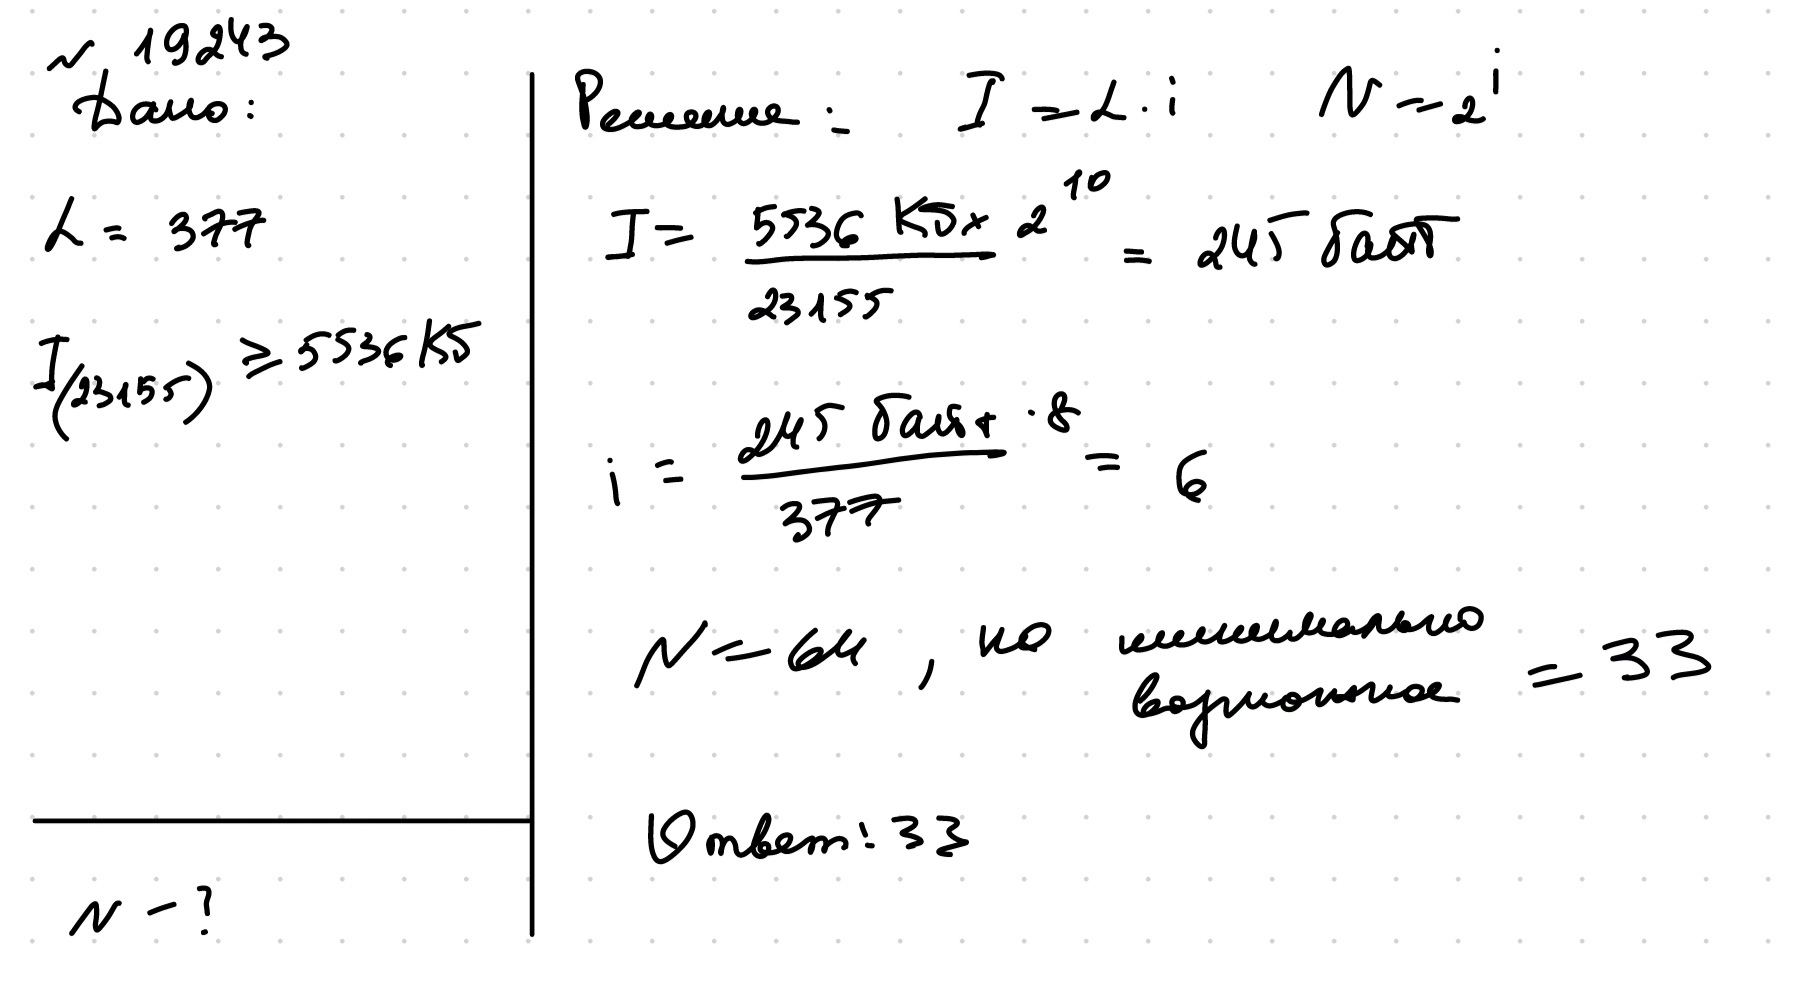 ~ 19243
Дано:
L = 377
I(23155) ≥ 5536 Кб
N - ?
Решение: I = L · i N = 2^i
I = 5536 Кб × 2^10 / 23155 = 245 байт
i = 245 байт · 8 / 377 = 6
N = 64, но минимально
возможное = 33
Ответ: 33